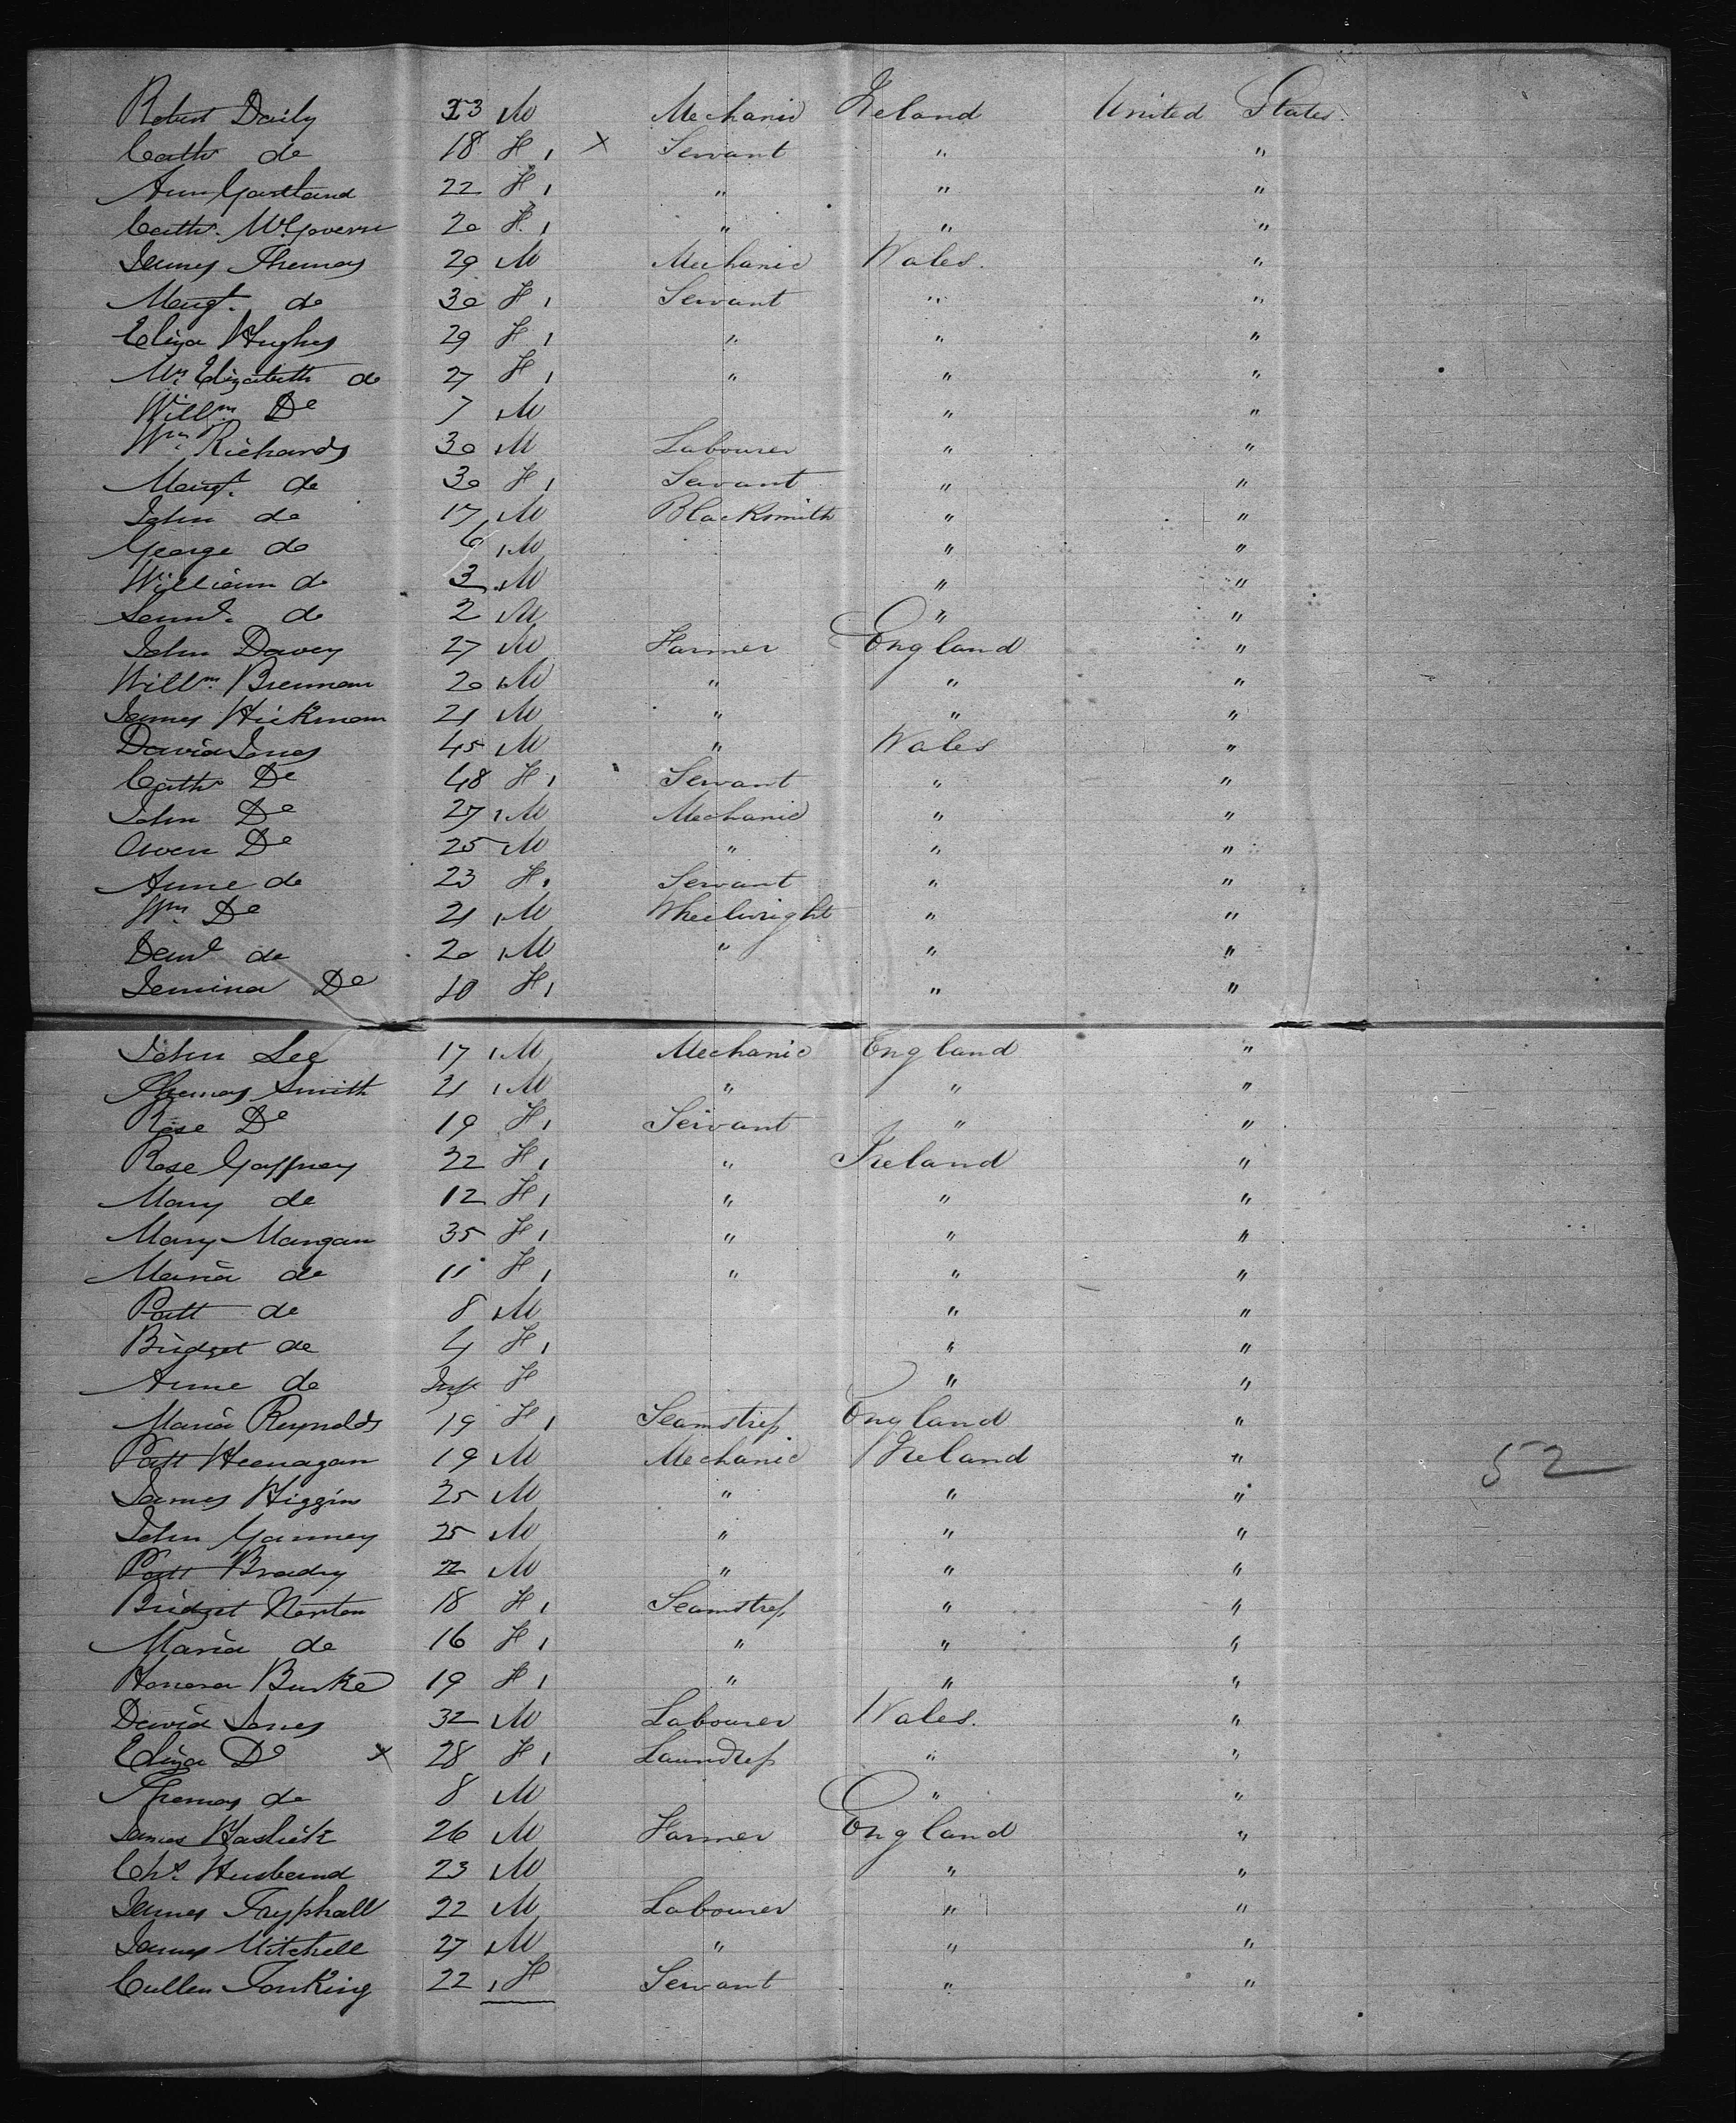 Robert Daily 23 M Mechanic Ireland United States.
Cath. do 18 F 1 x Servant " "
Ann Gartland 22 F 1 " " "
Cath. McGovern 20 F 1 " " "
James Thomas 29 M Mechanic Wales. "
Margt. do 30 F 1 Servant " "
Eliza Hughes 29 F 1 " " "
Mrs Elizabeth do 27 F 1 " " "
Willm Do 7 M " "
Wm Richards 30 M Labourer " "
Margt. do 30 F 1 Servant " "
John do 17 M Blacksmith " "
George do 6 M " "
William do 3 M " "
Saml. do 2 M " "
John Davey 27 M Farmer England "
Willm. Brennan 20 M " " "
James Hickman 21 M " " "
David Jones 45 M " Wales "
Cath Do 48 F 1 Servant " "
John Do 27 M Mechanic " "
Owen Do 25 M " " "
Anne do 23 F 1 Servant " "
Wm Do 21 M Wheelwright " "
Danl do 20 M " " "
Jemina Do 10 F 1 " "
John Lee 17 M Mechanic England "
Thomas Smith 21 M " " "
Rose Do 19 F 1 Servant " "
Rose Gaffney 32 F 1 " Ireland "
Mary do 12 F 1 " " "
Mary Mangan 35 F 1 " " "
Maria do 11 F 1 " " "
Patt do 8 M " "
Bridget do 4 F 1 " "
Anne do Inf F " "
Maria Reynolds 19 F 1 Seamstress England "
Patt Heenagan 19 M Mechanic Ireland " 52
James Higgins 25 M " " "
John Gainney 25 M " " "
Patt Brady 22 M " " "
Bridget Norton 18 F 1 Seamstress " "
Maria do 16 F 1 " " "
Honora Burke 19 F 1 " " "
David Jones 32 M Labourer Wales. "
Eliza Do x 28 F 1 Laundress " "
Thomas do 8 M " "
James Haslick 26 M Farmer England "
Chs. Husband 23 M " "
James Tryphall 22 M Labourer " "
James Mitchell 27 M " " "
Cullen Tonking 22 1 F Servant " "